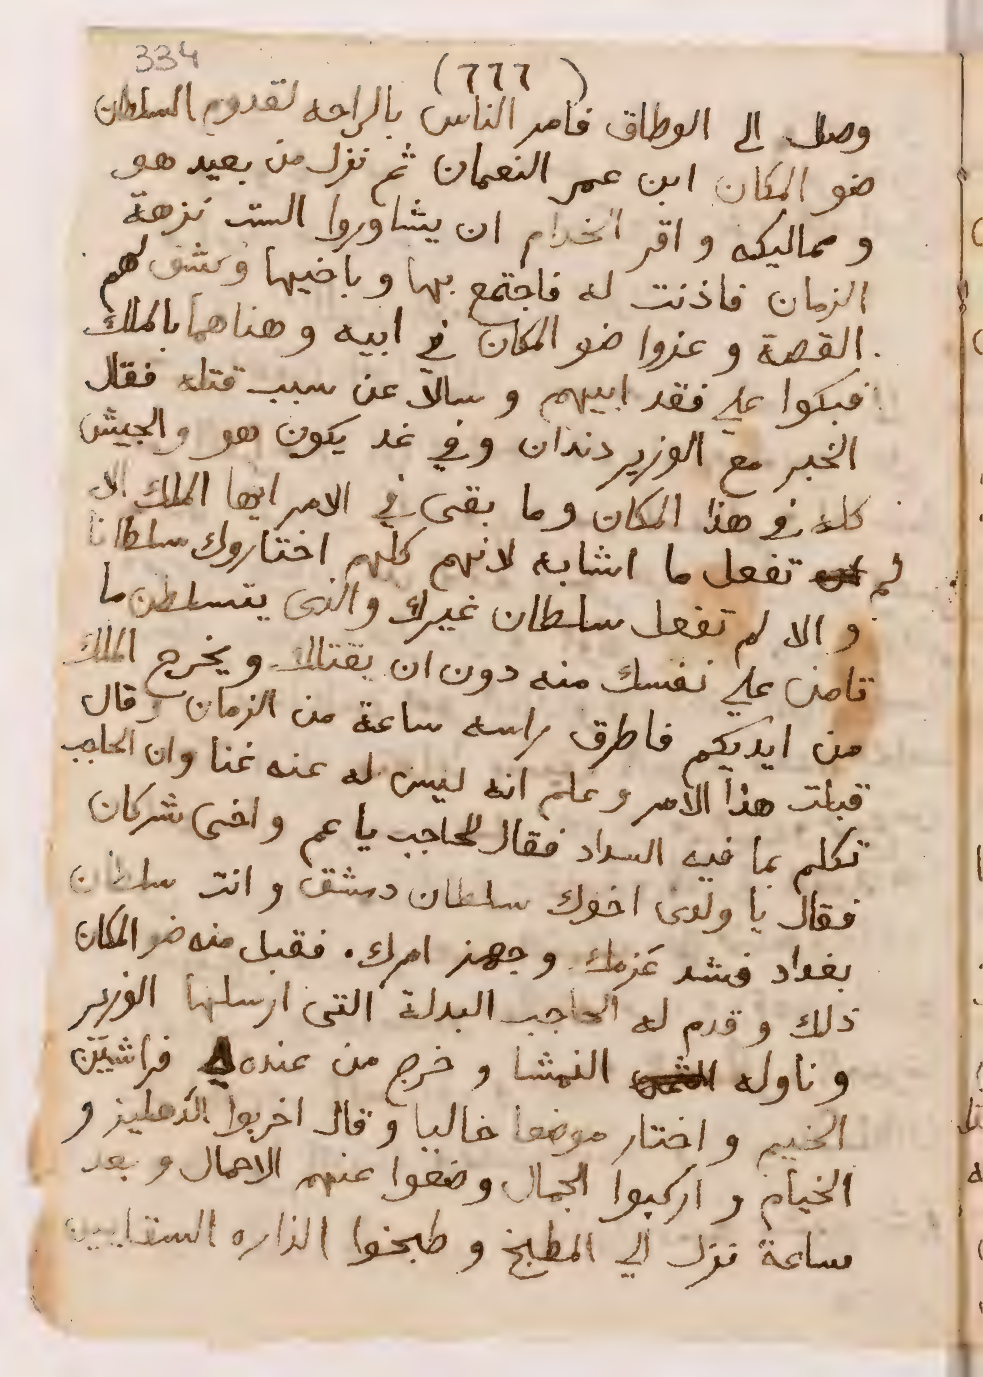 334
(٦٦٦)
وصل الى الوطاق فامر الناس بالراحه لقدوم السلطان
ضو المكان ابن عمر النعمان ثم نزل من بعيد هو
و مماليكه و اقر الخدام ان يشاوروا الست نزهة
الزمان فاذنت له فاجتمع بها و باخيها و لهم
القصة و عزوا ضو المكان في ابيه و هناهما بالملك
فبكوا علي فقد ابيهم و سالا عن سبب قتله فقال
الخبر مع الوزير دندان وفي غد يكون هو والجيش
كله في هذا المكان وما بقى في الامر ايها الملك الا
تفعل ما اشابه لانهم كلهم اختاروك سلطانا
و الا لم تفعل سلطان غيرك والذى يتسلطن ما
تامن علي نفسك منه دون ان يقتالك ويخرج الملك
من ايديكم فاطرق راسه ساعة من الزمان وقال
قبلت هذا الامر و علم انه ليس له عنه غنا وان الحاجب
تكلم بما فيه السداد فقال للحاجب يا عم و اخى شركان
فقال يا ولدى اخوك سلطان دمشق و انت سلطان
بغداد فشد عزمك و جهز امرك. فقبل منه ضو المكان
ذلك و قدم له الحاجب البدلة التى ارسلها الوزير
و ناوله النمشا و خرج من عنده فراشيين
الخيم و اختار موضعا خاليا و قال اخربوا الدهليز و
الخيام و اركبوا الجمال وضعوا عنهم الاحمال و بعد
ساعة نزل الي المطبخ و طبخوا الذاره السقايين